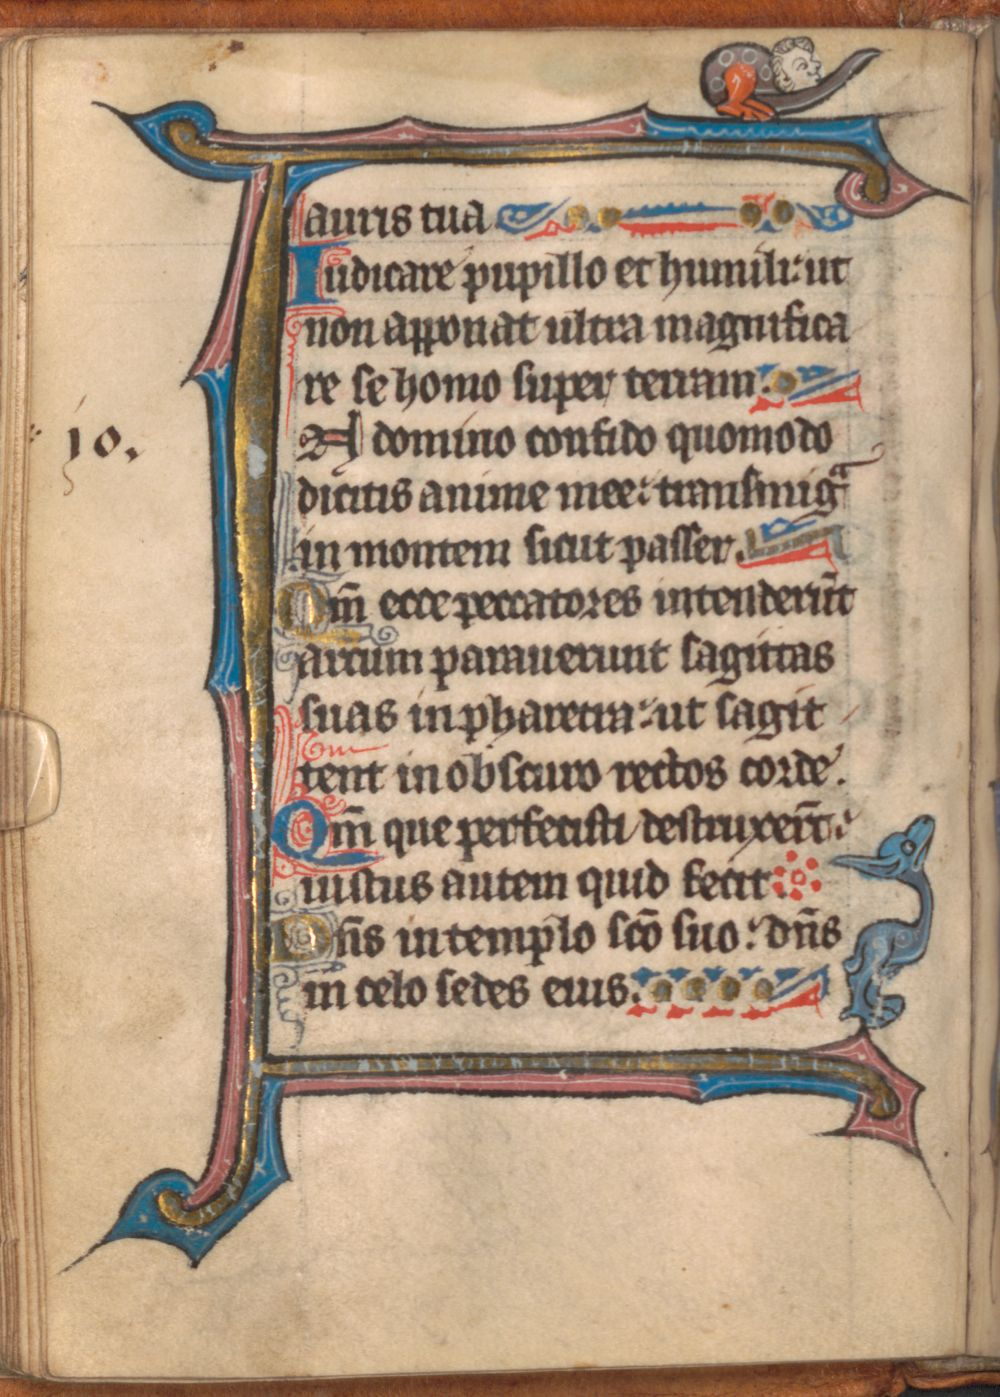 auris tua
Iudicare pupillo et humili: ut
non apponat ultra magnifica
re se homo super terram.
A domino confido quomodo
dicitis anime mee: transmigᵃ
in montem sicut passer.
Qm̄ ecce peccatores intenderūt
arcum parauerunt sagittas
suas in pharetra: ut sagit
tent in obscuro rectos corde.
Qm̄ que perfecisti destruxerūt:
iustus autem quid fecit
Dn̄s in templo sc̄o suo: dn̄s
in celo sedes eius.
10.